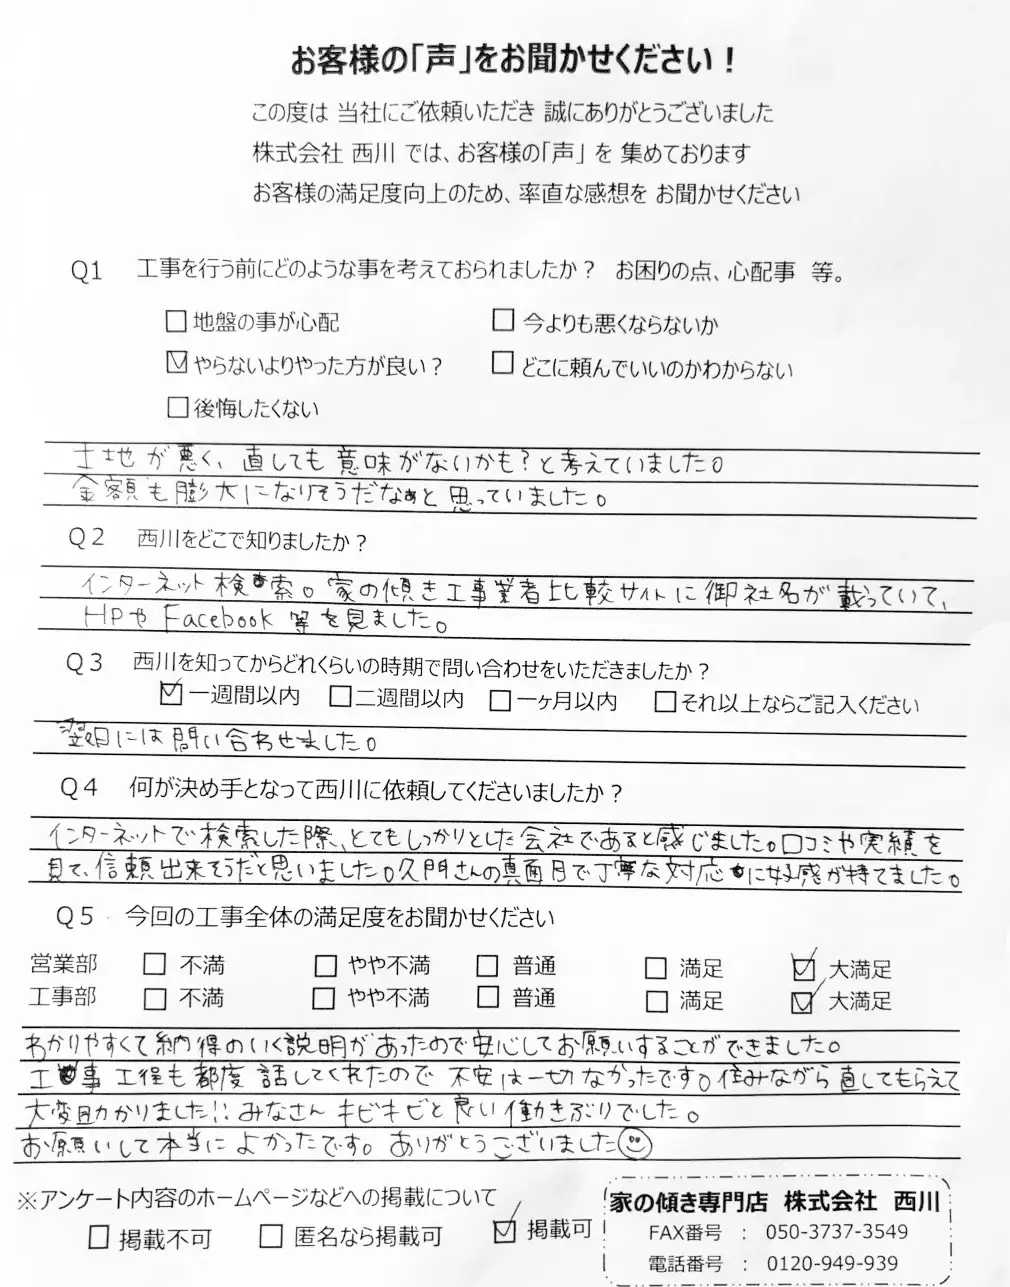 お客様の「声」をお聞かせください！
この度は 当社にご依頼いただき 誠にありがとうございました
株式会社 西川 では、お客様の「声」 を 集めております
お客様の満足度向上のため、率直な感想を お聞かせください
Q1 工事を行う前にどのような事を考えておられましたか？ お困りの点、心配事 等。
□地盤の事が心配 □今よりも悪くならないか
☑やらないよりやった方が良い？ □どこに頼んでいいのかわからない
□後悔したくない
土地が悪く、直しても意味がないかも？と考えていました。
金額も膨大になりそうだなぁと思っていました。
Q2 西川をどこで知りましたか？
インターネット検索。家の傾き工事業者比較サイトに御社名が載っていて、
HPや Facebook 等を見ました。
Q3 西川を知ってからどれくらいの時期で問い合わせをいただきましたか？
☑一週間以内 □二週間以内 □一ヶ月以内 □それ以上ならご記入ください
翌日には問い合わせました。
Q4 何が決め手となって西川に依頼してくださいましたか？
インターネットで検索した際、とてもしっかりとした会社であると感じました。口コミや実績を
見て、信頼出来そうだと思いました。久門さんの真面目で丁寧な対応に好感が持てました。
Q5 今回の工事全体の満足度をお聞かせください
営業部 □ 不満 □ やや不満 □ 普通 □ 満足 ☑ 大満足
工事部 □ 不満 □ やや不満 □ 普通 □ 満足 ☑ 大満足
わかりやすくて納得のいく説明があったので安心してお願いすることができました。
工事工程も都度話してくれたので不安は一切なかったです。住みながら直してもらえて
大変助かりました!! みなさんキビキビと良い働きぶりでした。
お願いして本当によかったです。ありがとうございました☺
※アンケート内容のホームページなどへの掲載について
□ 掲載不可 □ 匿名なら掲載可 ☑ 掲載可
家の傾き専門店 株式会社 西川
FAX番号 ： 050-3737-3549
電話番号 ： 0120-949-939